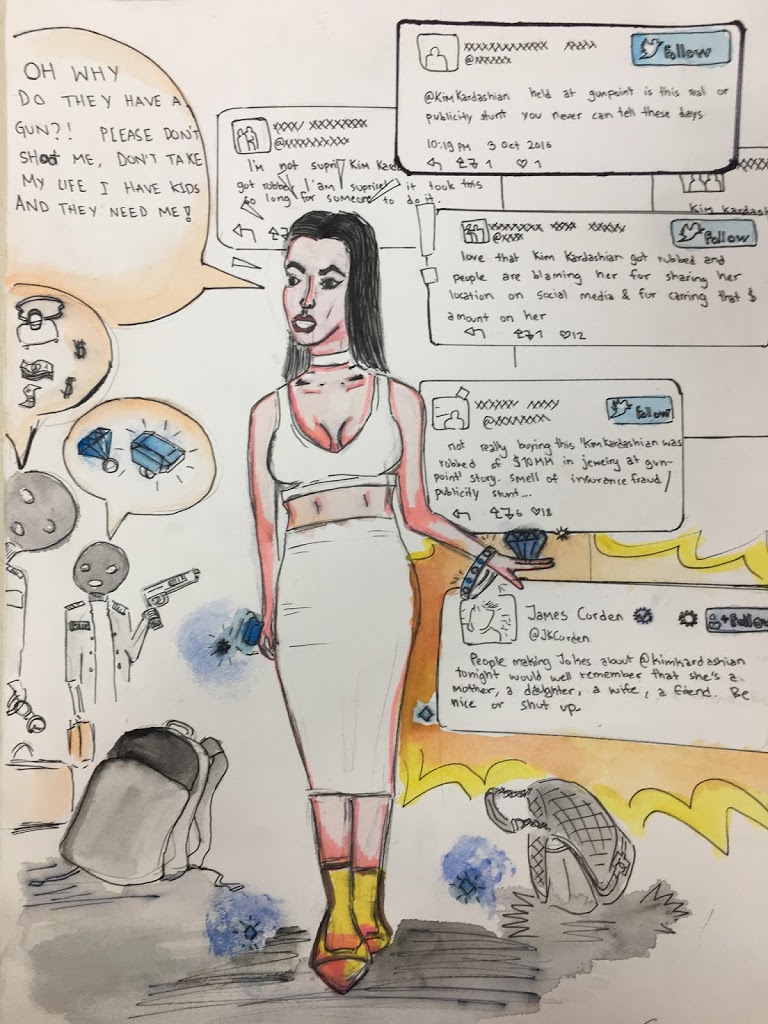 OH WHY
DO THEY HAVE A
GUN?! PLEASE DON'T
SHOOT ME, DON'T TAKE
MY LIFE I HAVE KIDS
AND THEY NEED ME!
XXXX/ XXXXXXXXX
@XXXXXXXXXX
I'm not supris Kim Kard
got rubbed I'am suprised it took this
so long for someone to do it.
XXXXXXXXXXXX XXXXX
@XXXXXXX
Follow
@KimKardashian held at gunpoint is this real or
publicity stunt you never can tell these days
10:19 PM 3 Oct 2016
1 1
Kim Kardash
@XXXX
Follow
love that Kim Kardashian got rubbed and
people are blaming her for sharing her
location on social media & for carring that $
amount on her
1 12
XXXXXX/ XXXX/
@XXXXXXXX
Follow
not really buying this "Kim Kardashian was
rubbed of $10MM in jewelry at gun-
point' story. Smell of insurance fraud/
publicity stunt...
6 18
James Corden
+Follow
@JKCorden
People making Jokes about @kimkardashian
tonight would well remember that she's a
mother, a daughter, a wife, a friend. Be
nice or shut up.